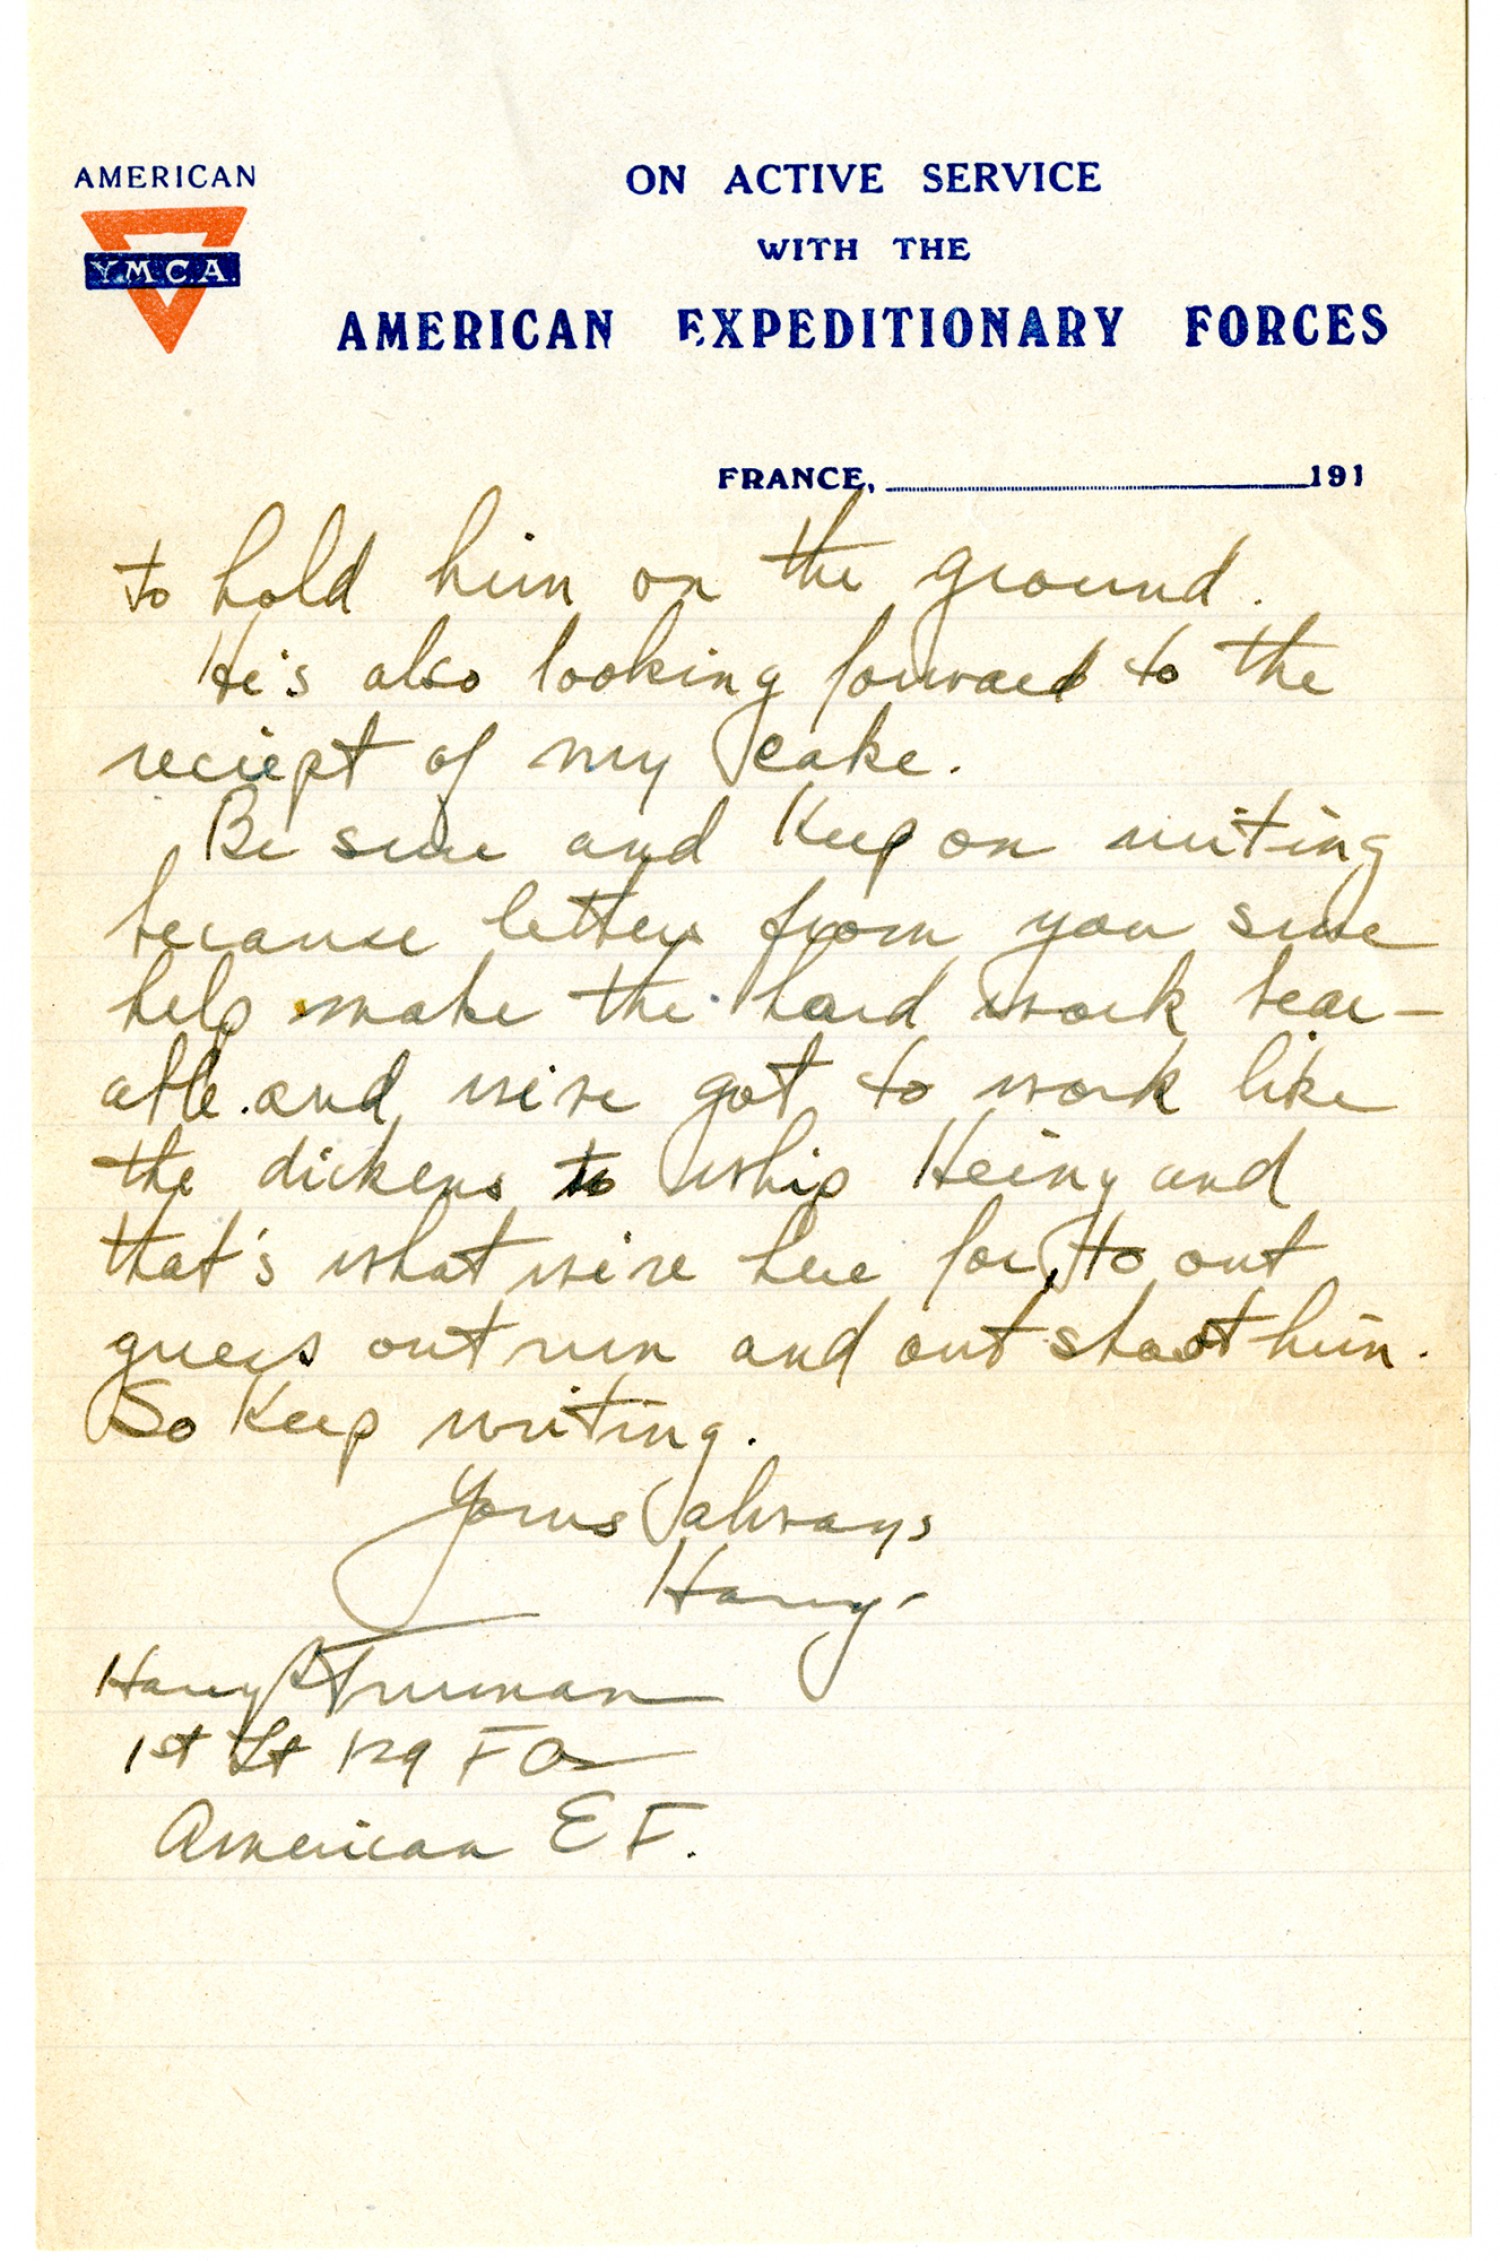 AMERICAN
Y.M.C.A.
ON ACTIVE SERVICE
WITH THE
AMERICAN EXPEDITIONARY FORCES
FRANCE, 191
to hold him on the ground.
He's also looking forward to the
reciept of my cake.
Be sure and Keep on writing
because letters from you sure
help make the hard work bear-
able. and we're got to work like
the dickens to whip Heiny and
that's what we're here for, to out
guess out run and out shoot him.
So Keep writing.
Yours always
Harry
Harry S Truman
1st Lt 129 F A
American E F.